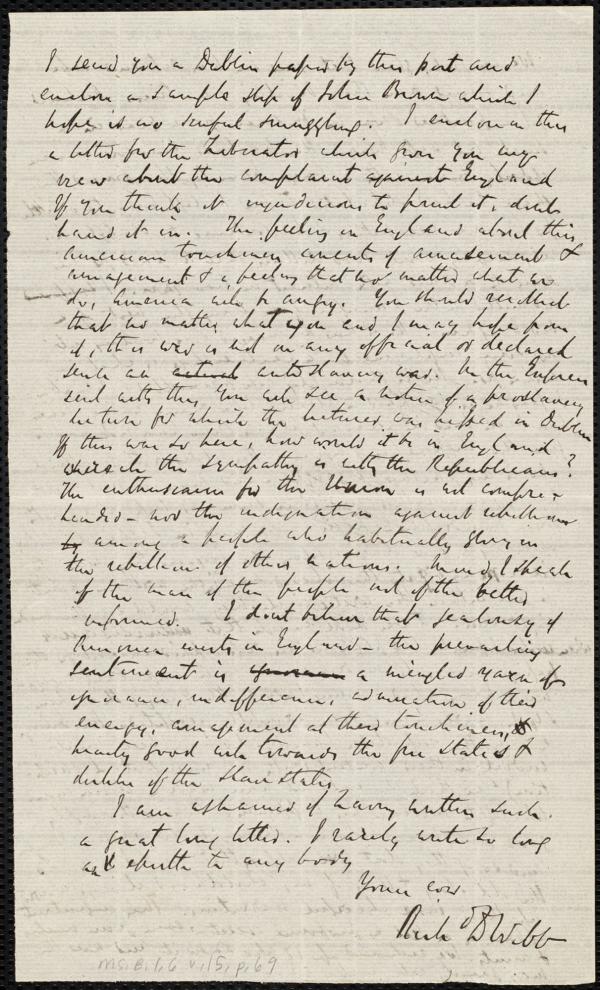 I send you a Dublin paper by this post and
enclose a sample slip of John Brown which I
hope is no sinful smuggling. I enclose in this
a letter for the Liberator which gives you my
view about the complaint against England
If you think it injudicious to print it, don't
hand it in. The feeling in England about this
American touchiness consists of amusement &
annoyance & a feeling that no matter what we
do, America will be angry. You should recollect
that no matter what you and I may hope from
it, this war is not in any official or declared
sense an actual antislavery war. In the
sent with this you will see a notice of a proslavery
lecture for which the lecturer was hissed in Dublin
If this was so here, how would it be in England
where all the sympathy is with the Republicans?
The enthusiasm for the Union is not compre-
hended - nor the indignation against rebellion
by among a people who habitually glory in
the rebellion of other nations. Mind, I speak
of the mass of the people not of the better
informed. I don't believe that jealousy of
America exists in England - the prevailing
sentiment is ignorance a mingled yarn of
ignorance, indifference, admiration of their
energy, amusement at their touchiness, &
hearty good will towards the free states &
dislike of the slave states
I am ashamed of having written such
a great long letter. I rarely write so long
an epistle to any body
Yours ever
Rich D Webb
Ms. B.1.6 v.15, p. 69